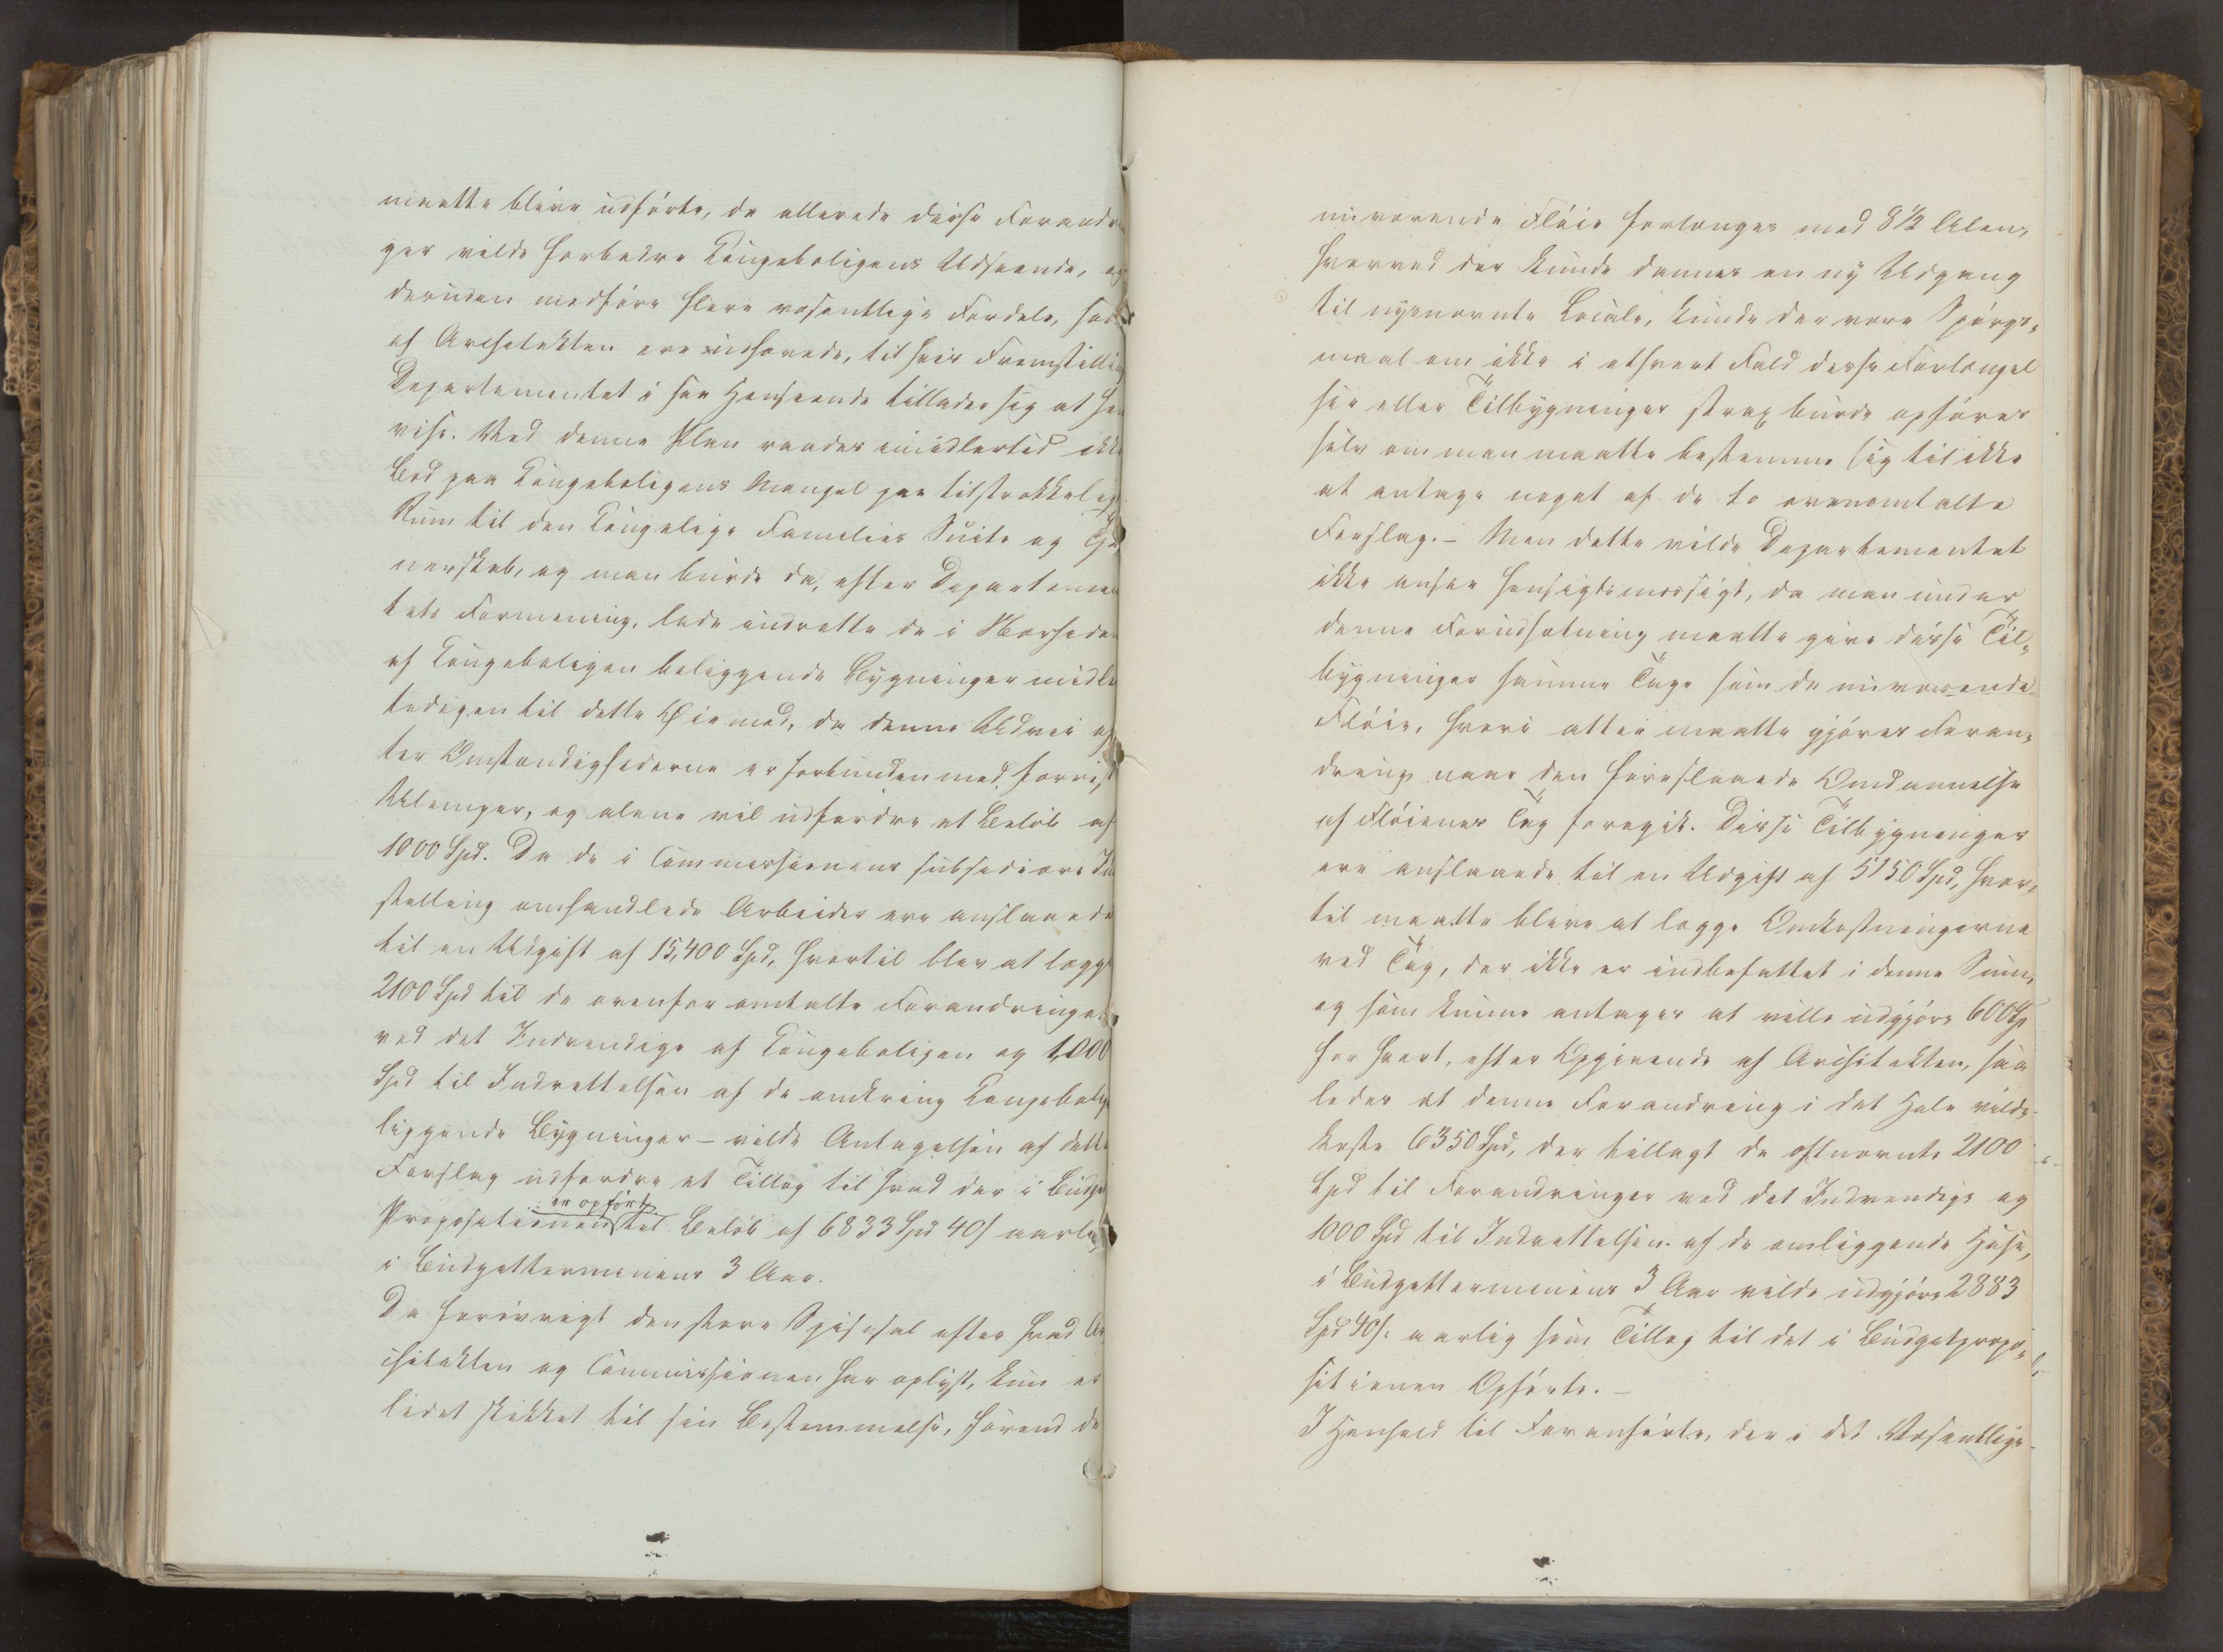 maatte blive udførte, da allerede disse Forandrin
ger vilde forbedre Kongeboligens Udseende, og
desuden medføre flere væsentlige Fordele, som
af Architekten ere udhævede, til hvis Fremstilling
Departementet i saa Henseende tillader sig at hen
vise. Ved denne Plan raades imidlertid ikke
Bod paa Kongeboligens Mangel paa tilstrækkeligt
Rum til den Kongelige Families Suite og Tje
nerskab, og man burde da, efter Departemen
tets Formening, lade indrette de i Nærheden
af Kongeboligen beliggende Bygninger midler
tidigen til dette Øiemed, da denne Udvei ef
ter Omstændighederne er forbunden med færrest
Ulemper, og alene vil udfordre et Beløb af
1000 Spd. Da de i Commissionens subsidiære Ind
stilling omhandlede Arbeider ere anslaaede
til en Udgift af 15,400 Spd, hvortil blev at lægge
2100 Spd til de ovenfor omtalte Forandringer
ved det Indvendige af Kongeboligen og 1,000
Spd til Indrettelsen af de omkring Kongeboligen
liggende Bygninger – vilde Antagelsen af dette
Forslag udfordre et Tillæg til hvad der i Budget
er opført
Propositionen til Beløb af 6833 Spd 40 s aarlig
i Budgetterminens 3 Aar.
Da forøvrigt den store Spisesal efter hvad Ar
chitekten og Commissionen har oplyst, kun er
lidet skikket til sin Bestemmelse, førend de
nuværende Fløie forlænges med 8 1/2 Alen,
hvorved der kunde dannes en ny Udgang
til nysnævnte Locale, kunde der være Spørgs-
maal om ikke i ethvert Fald disse Forlængel
ser eller Tilbygninger strax burde opføres
selv om man maatte bestemme sig til ikke
at antage noget af de to ovenomtalte
Forslag. – Men dette vilde Departementet
ikke ansee hensigtsmæssigt, da man under
denne Forudsætning maatte give disse Til-
bygninger samme Tage som de nuværende
Fløie, hvori atter maatte gjøres Foran-
dring naar den foreslaaede Omdannelse
af Fløienes Tag foregik. Disse Tilbygninger
ere anslaaede til en Udgift af 5150 Spd, hvor-
til maatte blive at lægge Omkostningerne
ved Tag, der ikke er indbefattet i denne Sum,
og som kunne antages at ville udgjøre 600 Sp
for hvert, efter Opgivende af Architekten, saa
ledes at denne Forandring i det Hele vilde
koste 6350 Spd, der tillagt de oftnævnte 2100
Spd til Forandringer ved det Indvendige og
1000 Spd til Indrettelsen af de omliggende Huse,
i Budgetterminens 3 Aar vilde udgjøre 2883
Spd 40 s. aarlig som Tillæg til det i Budgetpropo-
sitionen Opførte. –
I Henhold til Foranførte, der i det Væsentlige